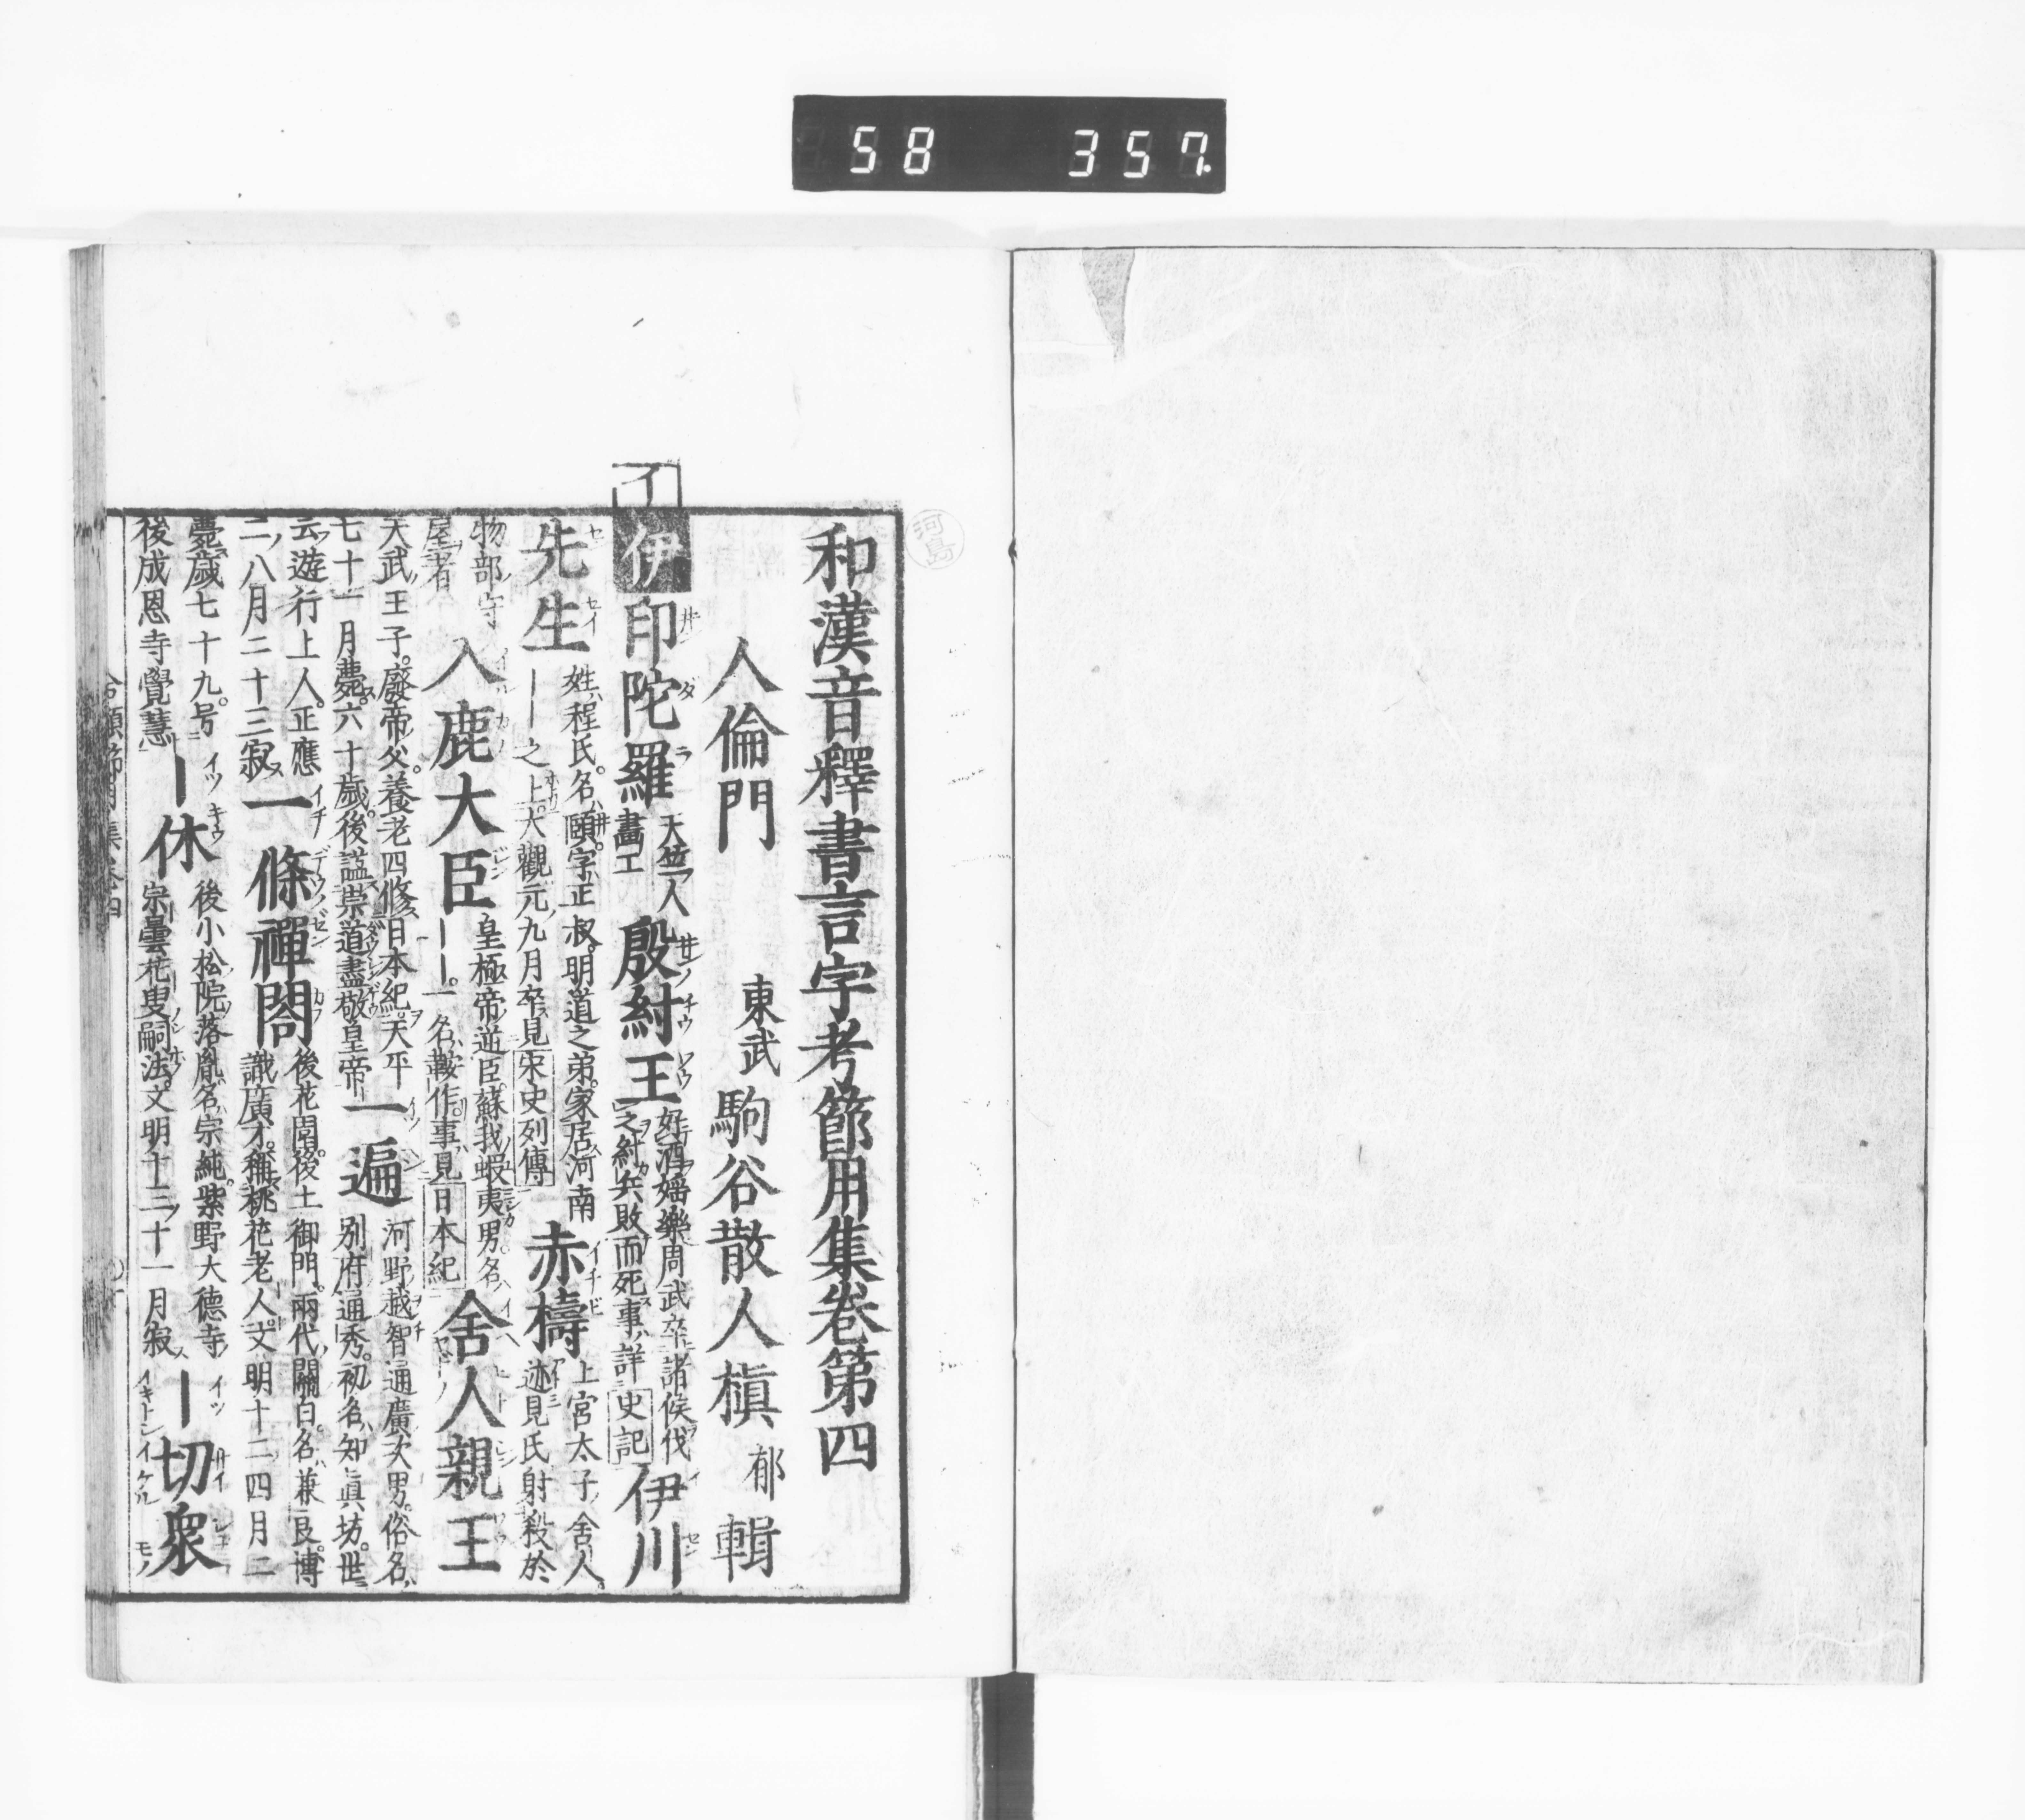 58 357
河島
和漢音釋書言字考節用集卷第四
人倫門 東武 駒谷散人槇 郁 輯
イ 伊 印陀羅 天竺人畫工 殷紂王 好酒婬樂周武卒諸侯伐之紂兵敗而死事詳史記 伊川
先生 姓程氏名頤字正叔明道之弟家居河南――之上大觀元九月卒見宋史列傳 赤檮 上宮太子舍人迹見氏射殺於
物部守屋者 入鹿大臣 皇極帝逆臣蘇我蝦夷男名――一名鞍作事見日本紀 舍人親王
天武王子廢帝父養老四修日本紀天平七十一月薨六十歲後謚崇道盡敬皇帝 一遍 河野越智通廣次男俗名別府通秀初名知眞坊世
云遊行上人正應二八月二十三寂 一條禪閤 後花園後土御門兩代關白名兼良博識廣才稱桃花老人文明十二四月二
薨歲七十九号後成恩寺覺慧 ―休 後小松院落胤名宗純紫野大德寺宗曇花叟嗣法文明十三十一月寂 ―切衆